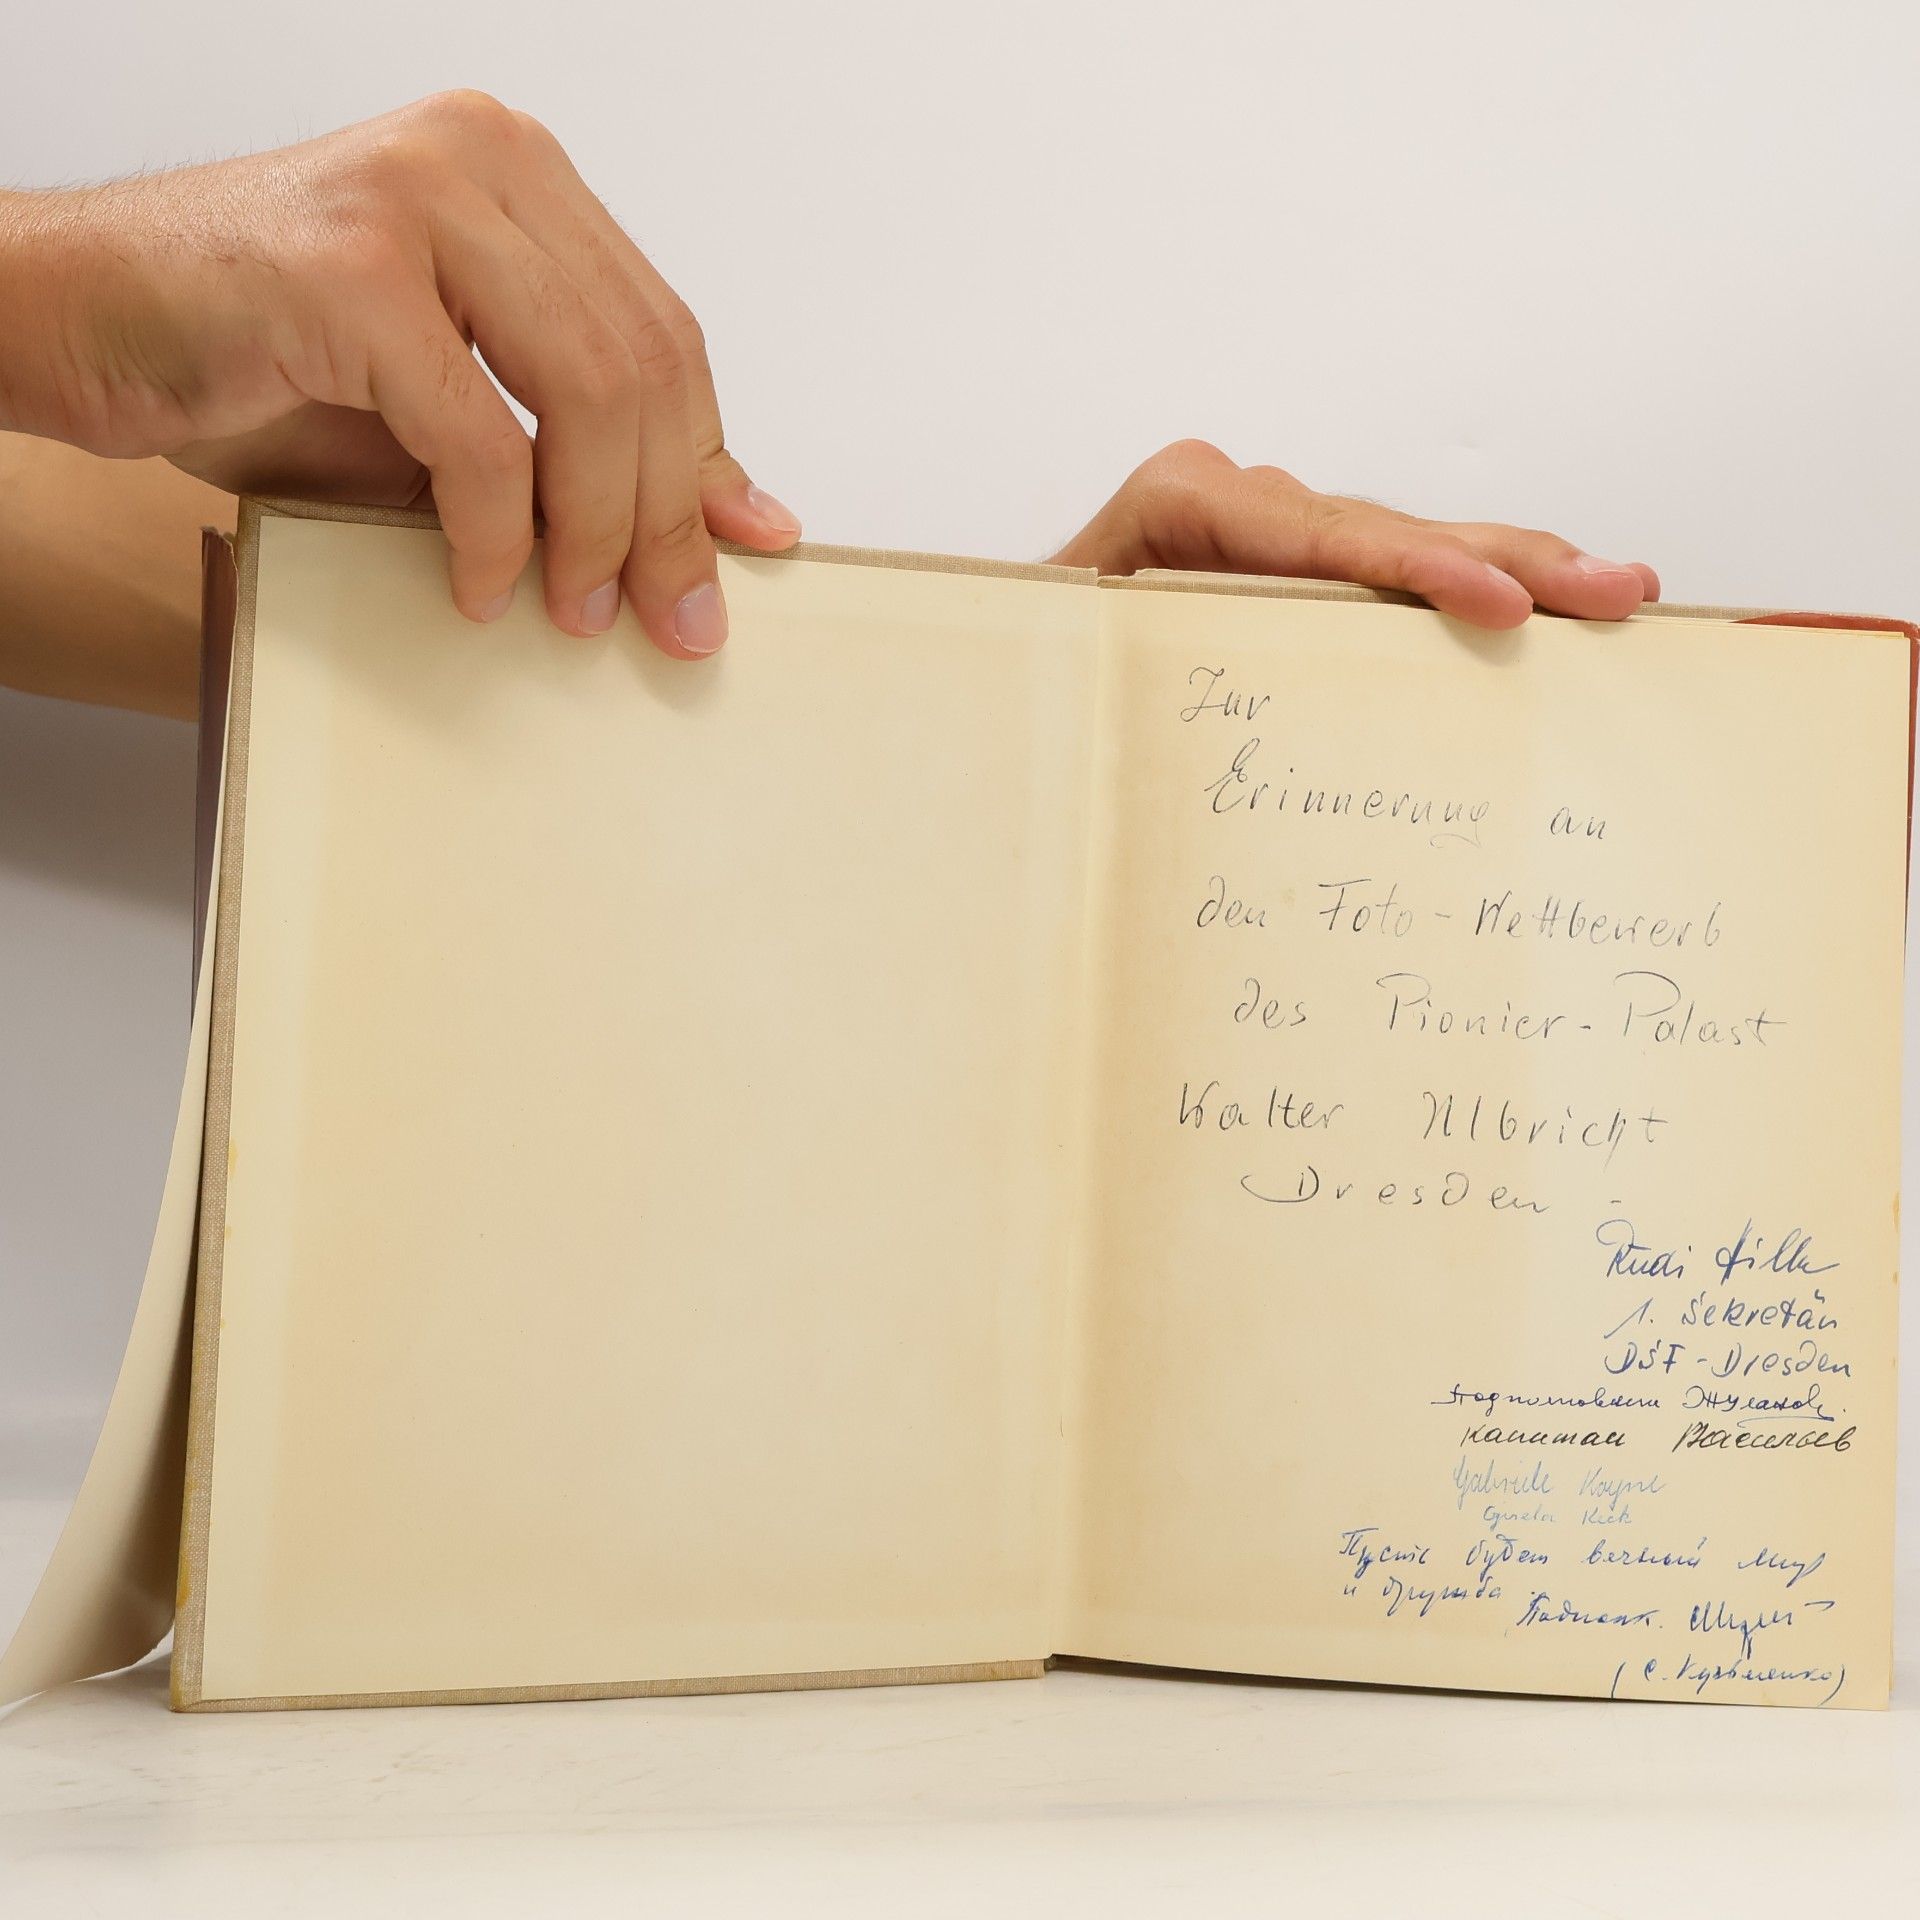 Zur
Erinnerung an
den Foto-Wettbewerb
des Pionier-Palast
Walter Ulbricht
Dresden -
Rudi
1. Sekretär
DSF-Dresden
Подполковник
капитан Васильев
Gabriele
Gisela Keck
Пусть будет вечный мир
и дружба
Подполк.
(С. Кузьменко)